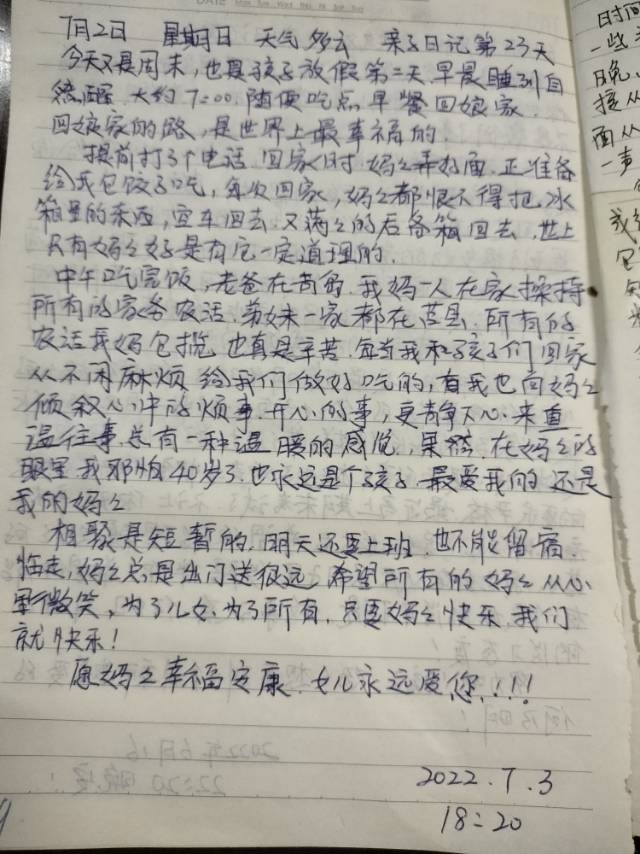 DATE
7月2日 星期日 天气多云 亲子日记第23天
今天又是周末,也是孩子放假第二天,早晨睡到自
然醒,大约7:00.随便吃点早餐回娘家.
回娘家的路,是世界上最幸福的.
提前打了个电话,回家时,妈妈弄好面,正准备
给我包饺子吃,每次回家,妈妈都恨不得把冰
箱里的东西,空车回去,又满满的后备箱回去,世上
只有妈妈好是有它一定道理的.
中午吃完饭,老爸在苦鲁,我妈一人在家操持
所有的家务农活.弟妹一家都在莒县.所有的
农活我妈包揽,也真是辛苦.每当我和孩子们回家
从不闲麻烦给我们做好吃的,有我也向妈妈
倾叙心中的烦事.开心的事,更静下心来重
温往事.总有一种温暖的感觉,果然,在妈妈的
眼里我那怕40岁了.也永远是个孩子.最爱我的还是
我的妈妈
相聚是短暂的.明天还要上班.也不能留宿.
临走,妈妈总是出门送很远,希望所有的妈妈从心
里微笑,为了儿女.为了所有.只要妈妈快乐.我们
就快乐!
愿妈妈幸福安康.女儿永远爱您!!!!
2022.7.3
18:20
时间
一些
晚.
面从
一事